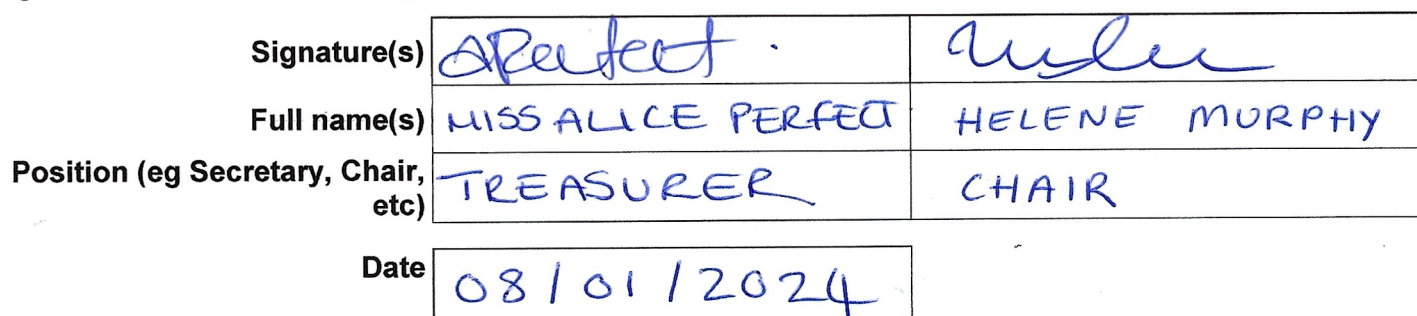 Signature(s) APerfect.
Full name(s) MISS ALICE PERFECT HELENE MURPHY
Position (eg Secretary, Chair, TREASURER CHAIR
etc)
Date 08/01/2024